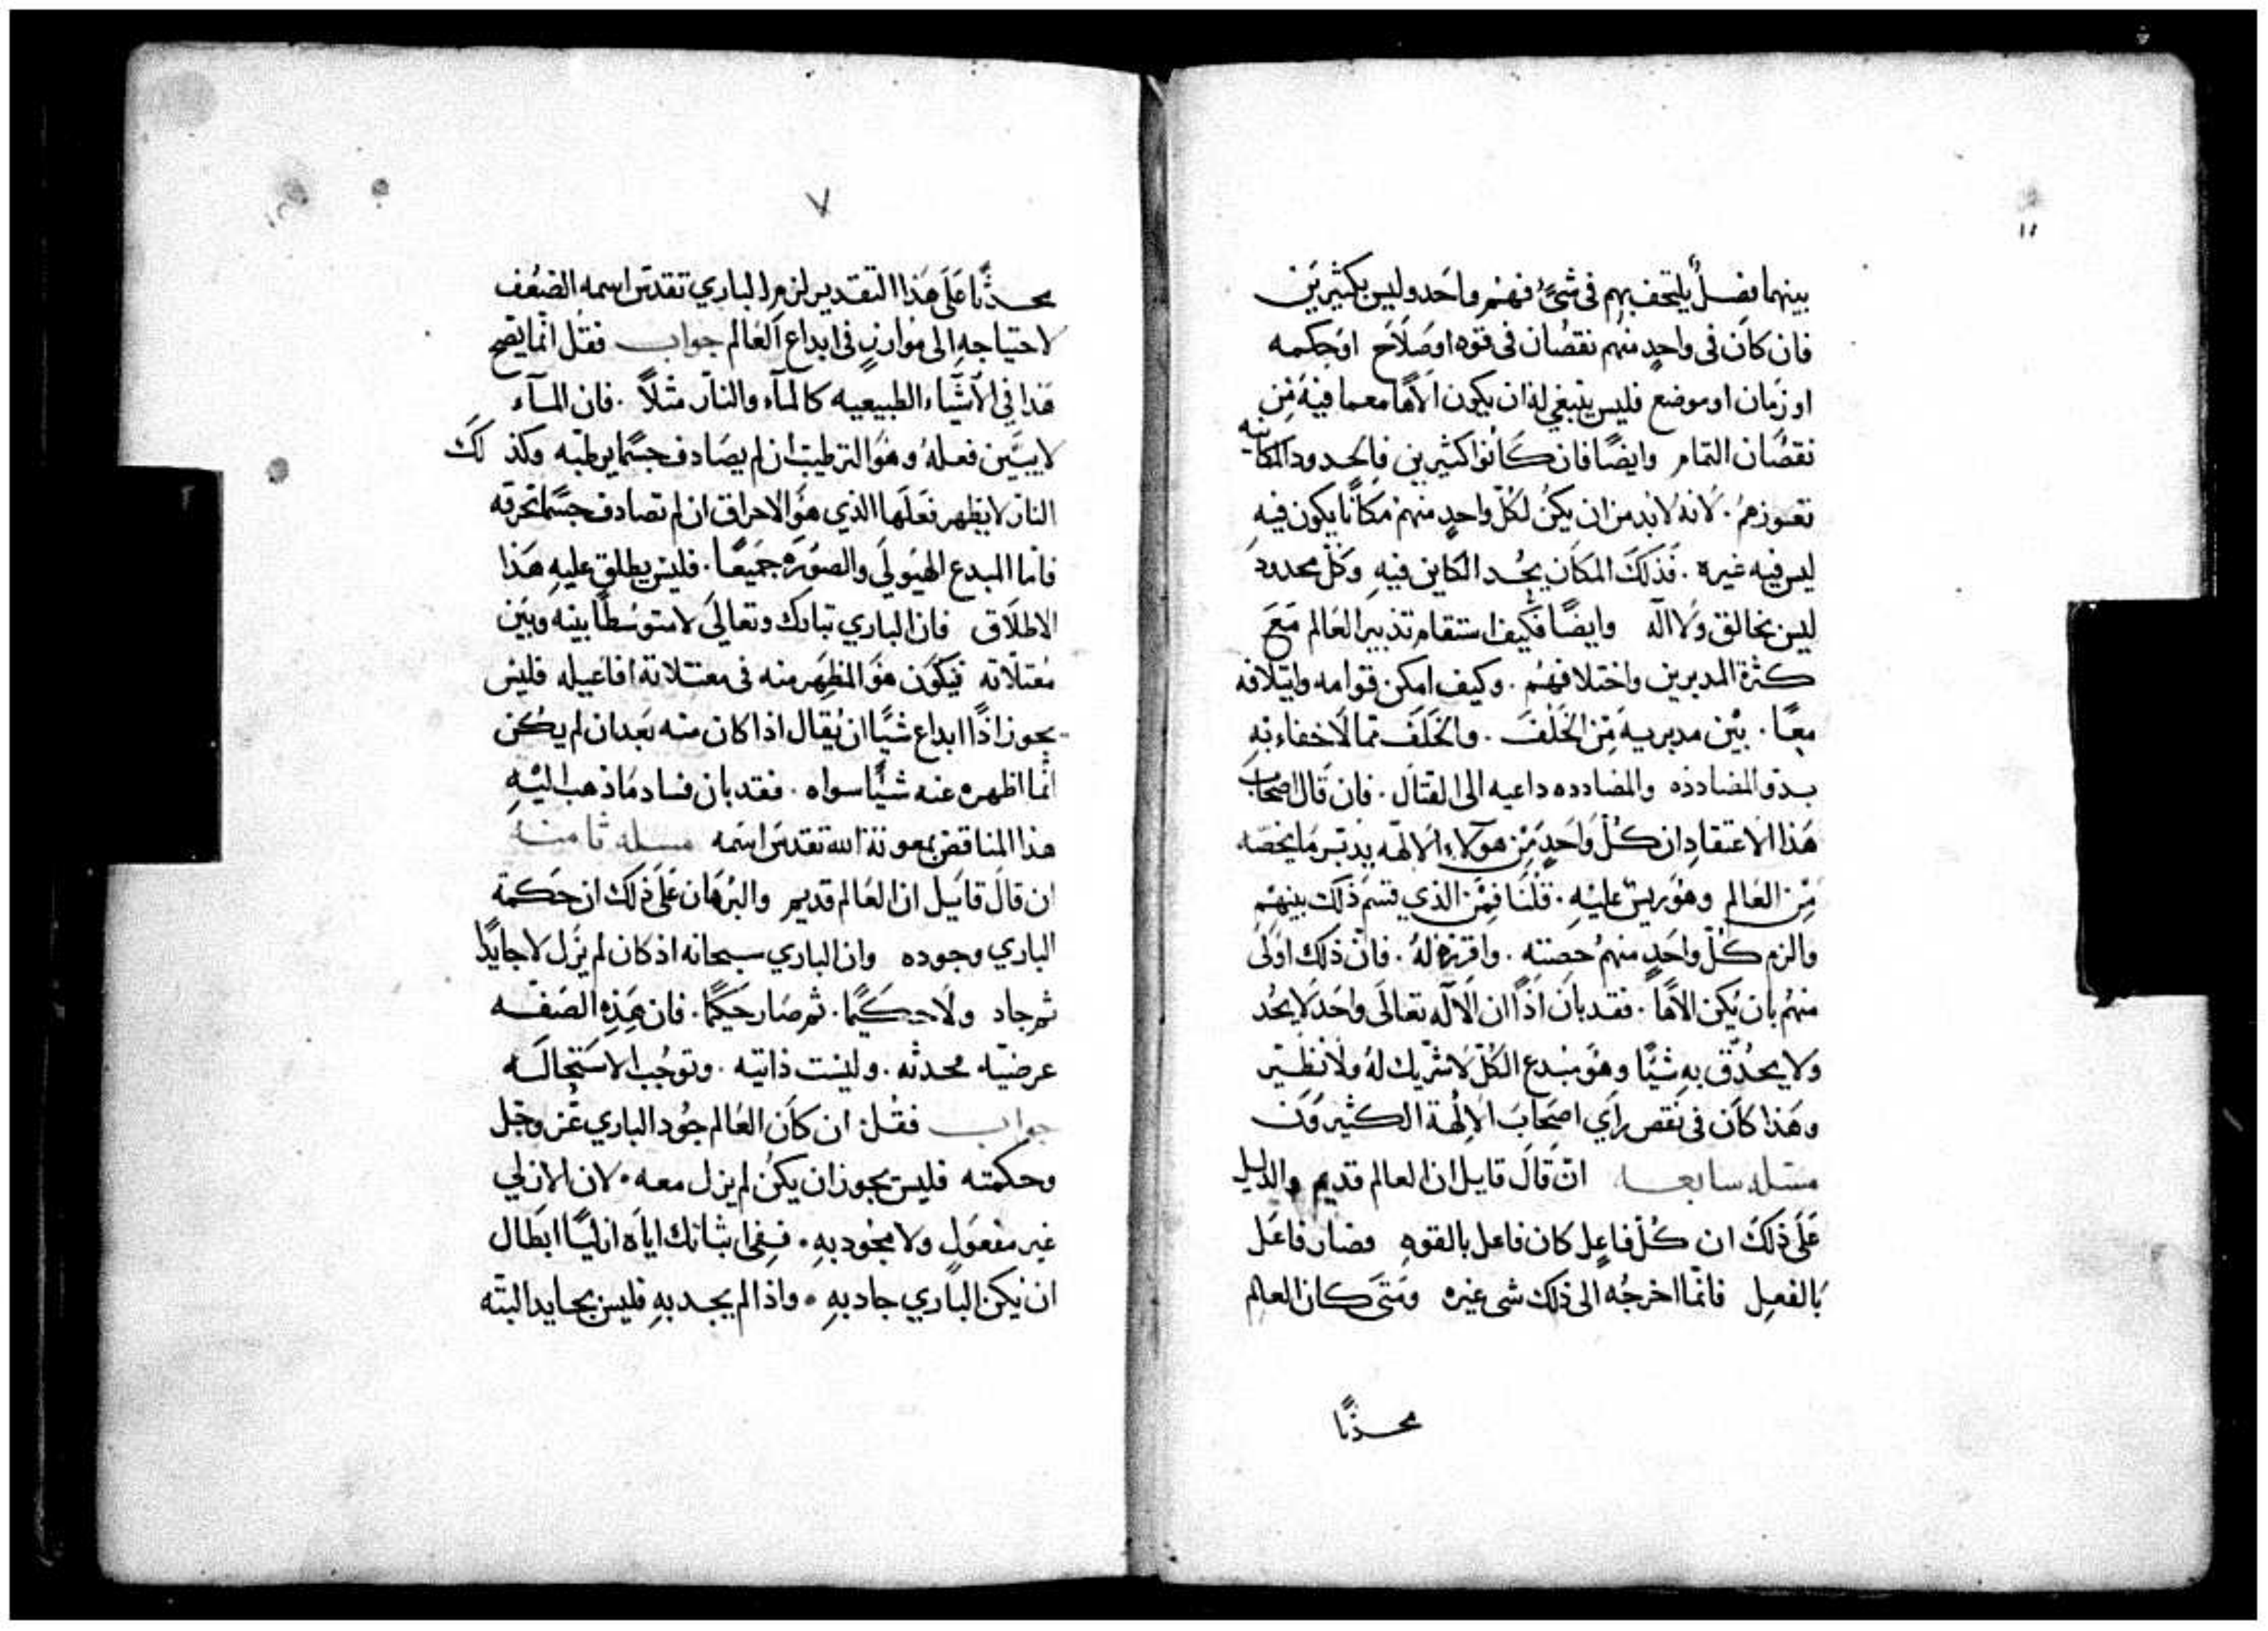 بينهما فصلٌ يلتحف بهم فى شىٍ فهم واحد وليس بكثيرين
فان كان فى واحدٍ منهم نقصان فى قوه او صلاح او حكمه
او زمان او موضع فليس ينبغي له ان يكون الاها معما فيه من
نقصان التمام وايضًا فان كانوا كثيرين فالحدود المكانيه
تعوزهم . لانه لا بد من ان يكن لكل واحدٍ منهم مكانًا يكون فيه
ليس فيه غيره . فذلك المكان يحد الكاين فيه وكل محدود
ليس بخالق ولا اله وايضًا فكيف استقام تدبير العالم مع
كثرة المدبرين واختلافهم . وكيف امكن قوامه وايتلافه
معًا . بين مدبريه من الخلف . والخلف مما لا خفاء به
بدؤ المضادده والمضادده داعيه الى القتال . فان قال اصحاب
هذا الاعتقاد ان كل واحدٍ من هولاء الالهه يدبر ما يخصه
من العالم وهو ريس عليه . قلنا فمن الذي قسم ذلك بينهم
والزم كل واحدٍ منهم حصته . وافرزه له . فان ذلك اولى
منهم بان يكن الاهاً . فقد بان اذًا ان الاله تعالى واحد لا يحد
ولا يحدق به شيًا وهو مبدع الكل لا شريك له ولا نظير
وهذا كان فى نقص راي اصحاب الالهة الكثيرون
مسله سابعه ان قال قايل ان العالم قديم والدليل
على ذلك ان كل فاعلٍ كان فاعل بالقوه فصار فاعل
بالفعل فانما اخرجه الى ذلك شى غيره ومتى كان العالم
محدثًا
٧
محدثًا على هذا التقدير لزم الباري تقدس اسمه الضعف
لاحتياجه الى موازنٍ فى ابداع العالم جواب فقل انما يصح
هذا في الاشياء الطبيعيه كالماء والنار مثلاً . فان الماء
لا يبين فعله وهو الترطيب ان لم يصادف جسمًا يرطبه وكذلك
النار لا يظهر فعلها الذي هو الاحراق ان لم تصادف جسمًا تحرقه
فاما المبدع الهيولي والصوره جميعًا . فليس يطلق عليه هذا
الاطلاق فان الباري تبارك وتعالى لا متوسطًا بينه وبين
مفتلاته فيكون هو المظهر منه فى مفتلاته افاعيله فليس
يجوز اذًا ابداع شيًا ان يقال اذا كان منه بعد ان لم يكن
انما اظهره عنه شيًا سواه . فقد بان فساد ما ذهب اليه
هذا المناقض بمعونة الله تقدس اسمه مسله ثامنه
ان قال قايل ان العالم قديم والبرهان على ذلك ان حكمة
الباري وجوده وان الباري سبحانه اذ كان لم يزل لا جايدًا
ثم جاد ولا حكيمًا . ثم صار حكيمًا . فان هذه الصفه
عرضيه محدثه . وليست ذاتيه . وتوجب الاستحاله
جواب فقل ان كان العالم جود الباري عز وجل
وحكمته فليس يجوز ان يكن لم يزل معه . لان الازلي
غير مفعول ولا مجود به . ففى اثباتك اياه ازليًا ابطال
ان يكن الباري جاد به . واذا لم يجد به فليس بجايد البته